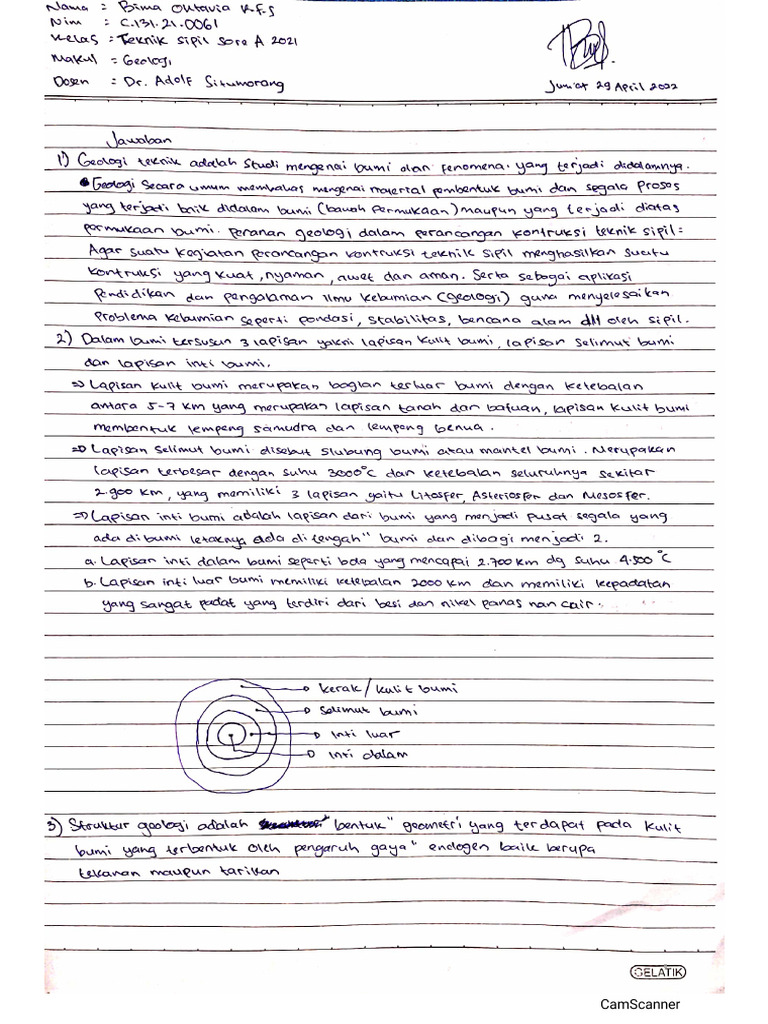 Nama : Bima Oktavia K.F.S
Nim : C.131.21.0061
Kelas : Teknik Sipil Sore A 2021
Makul : Geologi
Dosen : Dr. Adolf Situmorang
Jum'at 29 April 2022
Jawaban
1) Geologi teknik adalah studi mengenai bumi dan fenomena. yang terjadi didalamnya.
• Geologi secara umum membahas mengenai material pembentuk bumi dan segala proses
yang terjadi baik didalam bumi (bawah permukaan) maupun yang terjadi diatas
permukaan bumi. Peranan geologi dalam perancangan kontruksi teknik sipil =
Agar suatu kegiatan perancangan kontruksi teknik sipil menghasilkan suatu
kontruksi yang kuat, nyaman, awet dan aman. Serta sebagai aplikasi
pendidikan dan pengalaman Ilmu kebumian (geologi) guna menyelesaikan
problema kebumian seperti pondasi, stabilitas, bencana alam dll oleh sipil.
2) Dalam bumi tersusun 3 lapisan yakni lapisan kulit bumi, lapisan selimut bumi
dan lapisan inti bumi.
⇒ Lapisan kulit bumi merupakan bagian terluar bumi dengan ketebalan
antara 5-7 km yang merupakan lapisan tanah dan batuan, lapisan kulit bumi
membentuk lempeng samudra dan lempeng benua.
⇒ Lapisan selimut bumi disebut slubung bumi atau mantel bumi. Merupakan
lapisan terbesar dengan suhu 3000°C dan ketebalan seluruhnya sekitar
2.900 km, yang memiliki 3 lapisan yaitu Litosfer, Asteriosfer dan Mesosfer.
⇒ Lapisan inti bumi adalah lapisan dari bumi yang menjadi pusat segala yang
ada di bumi letaknya ada di tengah" bumi dan dibagi menjadi 2.
a. Lapisan inti dalam bumi seperti bola yang mencapai 2.700 km dg suhu 4.500 °C
b. Lapisan inti luar bumi memiliki ketebalan 2000 km dan memiliki kepadatan
yang sangat padat yang terdiri dari besi dan nikel panas nan cair.
kerak / kulit bumi
Selimut bumi
Inti luar
Inti dalam
3) Struktur geologi adalah bentuk" geometri yang terdapat pada kulit
bumi yang terbentuk oleh pengaruh gaya" endogen baik berupa
tekanan maupun tarikan
GELATIK
CamScanner